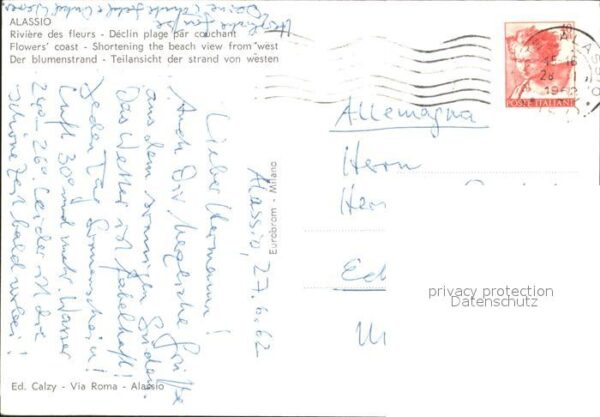 ALASSIO
Rivière des fleurs - Déclin plage par couchant
Flowers' coast - Shortening the beach view from west
Der blumenstrand - Teilansicht der strand von westen
Alassio, 27.6.62
Lieber Hermann!
Auch Dir herzliche Grüße
aus dem sonnigen Süden.
Das Wetter ist fabelhaft!
Jeden Tag Sonnenschein!
Luft 30° und mehr. Wasser
24°-26°. Leider ist die
schöne Zeit bald vorbei!
Herzliche Grüße
Deine
Ed. Calzy - Via Roma - Alassio
Eurobrom - Milano
ALASSIO
15-16
28
POSTE ITALIANE
Allemagna
Herrn
privacy protection
Datenschutz